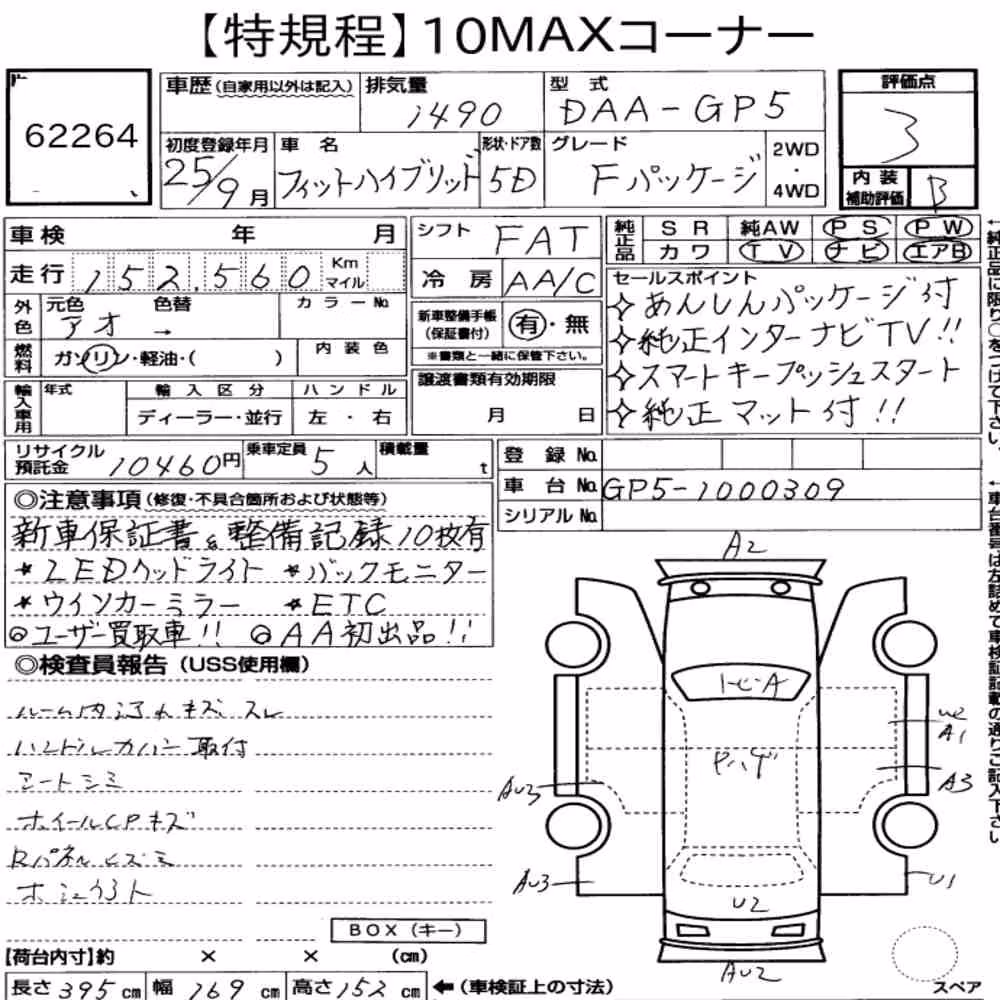 【特規程】10MAXコーナー
62264
車歴(自家用以外は記入) 排気量 1490 型式 DAA-GP5
評価点 3
初度登録年月 25/9月 車名 フィットハイブリッド 形状・ドア数 5D グレード Fパッケージ 2WD・4WD
内装補助評価 B
車検 年 月
シフト FAT
純正品 SR 純AW PS PW
カワ TV ナビ エアB
走行 152,560 Km マイル
冷房 AA/C
外色 元色 アオ 色替 → カラーNo
新車整備手帳(保証書付) 有・無
※書類と一緒に保管下さい。
燃料 ガソリン・軽油・( ) 内装色
セールスポイント
☆あんしんパッケージ付
☆純正インターナビTV!!
☆スマートキープッシュスタート
☆純正マット付!!
輸入車用 年式 輸入区分 ハンドル
ディーラー・並行 左・右
譲渡書類有効期限
月 日
リサイクル預託金 10460円 乗車定員 5人 積載量 t
登録No.
車台No. GP5-1000309
シリアルNo.
◎注意事項(修復・不具合箇所および状態等)
新車保証書&整備記録10枚有
★LEDヘッドライト ★バックモニター
★ウインカーミラー ★ETC
◎ユーザー買取車!! ◎AA初出品!!
◎検査員報告(USS使用欄)
ルーム内 キズ スレ
ハンドルカバー取付
シートシミ
ホイールCPキズ
Rパネルヒズミ
BOX(キー)
【荷台内寸】約 × × (cm)
長さ395cm 幅169cm 高さ152cm ←(車検証上の寸法)
A2
トビA
U2
A1
Pハゲ
AU3
A3
AU3
U1
U2
AU2
スペア
←純正品に限り○をつけて下さい。
←車台番号は左詰めで車検証記載の通りご記入下さい